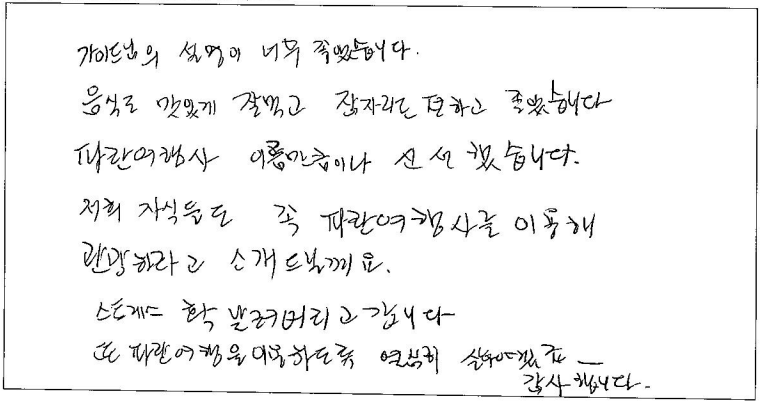 가이드님의 설명이 너무 좋았습니다.
음식도 맛있게 잘먹고 잠자리도 편하고 좋았습니다
파란여행사 이름만큼이나 신선했습니다.
저희 자식들도 꼭 파란여행사를 이용해
관광하라고 소개드릴께요.
스트레스 확 날려버리고 갑니다
또 파란여행을 이용하도록 열심히 살아야겠죠 —
감사했습니다.